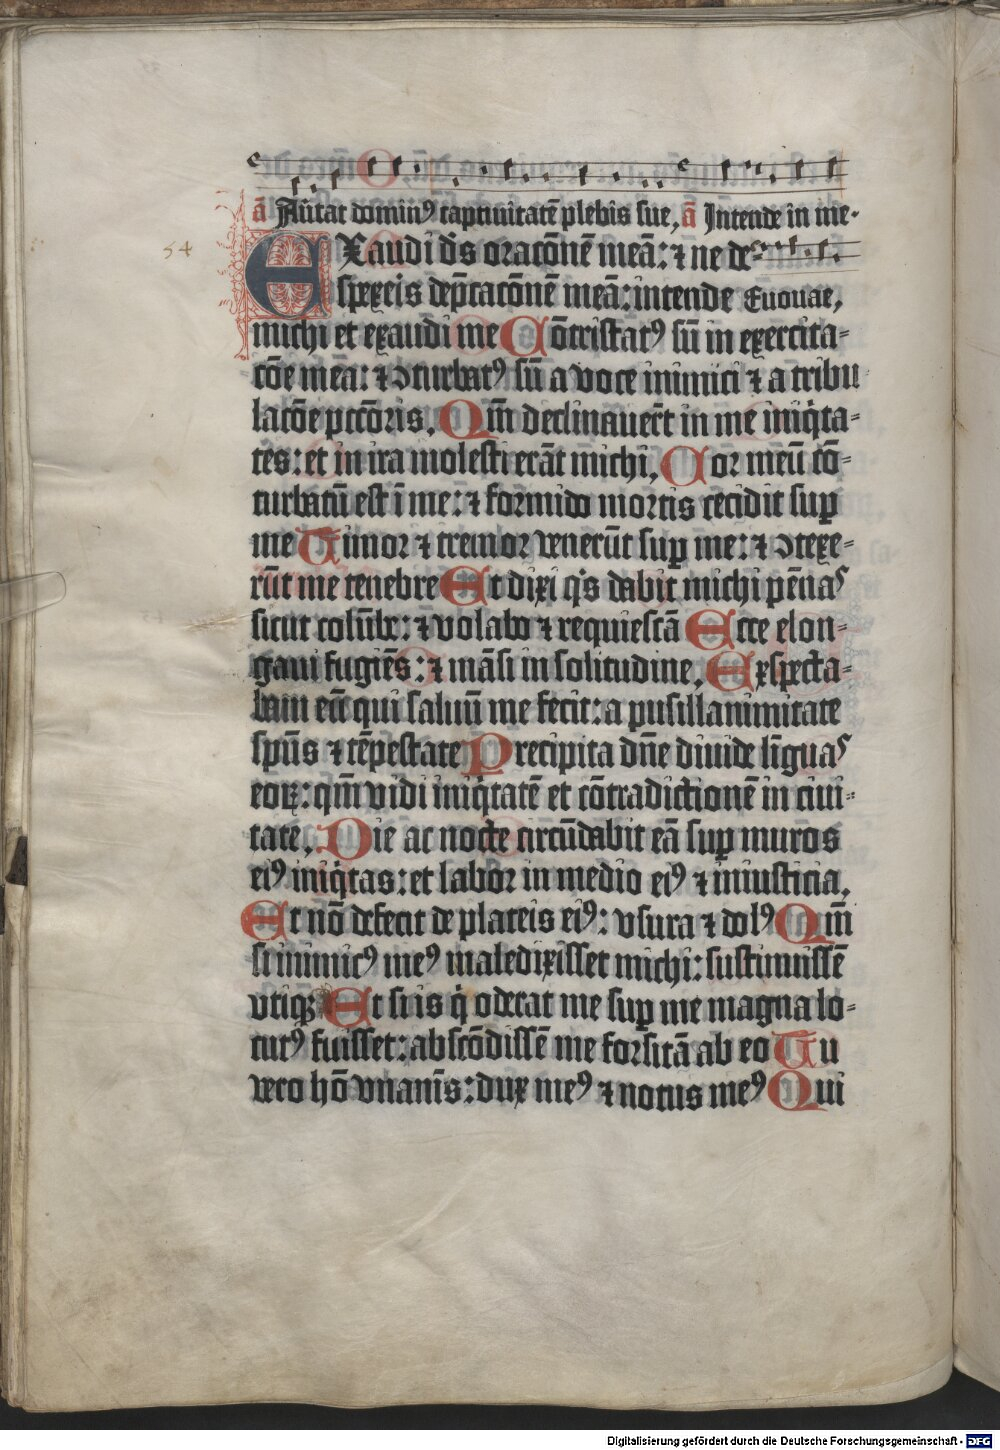 ā Aūtat domin⁹ captiuitatē plebis sue, ā Intende in me.
54
EXaudi d̄s orac̄onē meā: ⁊ ne de
spexeis dep̄rac̄onē meā: intende Euouae,
michi et exaudi me Cōtristat⁹ sū in exercita-
c̄oe mea: ⁊ ↄturbat⁹ sū a voce inimici ⁊ a tribu
lac̄oe pcc̄oris, Qm̄ declinauer̄t in me iniq̇ta-
tes: et in ira molesti erāt michi, Cor meū cō-
turbatū est ī me: ⁊ formido mortis cecidit suꝑ
me Timor ⁊ tremor venerūt suꝑ me: ⁊ ↄtexe-
rūt me tenebre Et dixi q̇s dabit michi pēnas
sicut colūbe: ⁊ volabo ⁊ requiescā Ecce elon-
gaui fugiēs: ⁊ māsi in solitudine, Exspecta-
bam eū qui saluū me fecit: a pusillanimitate
sp̄us ⁊ tēpestate Precipita dn̄e diuide līguas
eoꝝ: qm̄ vidi iniq̇tatē et cōtradictionē in ciui-
tate, Die ac nocte circūdabit eā suꝑ muros
ei⁹ iniq̇tas: et labor in medio ei⁹ ⁊ iniusticia,
Et nō defecit de plateis ei⁹: vsura ⁊ dol⁹ Qm̄
si inimic⁹ me⁹ maledixisset michi: sustinuissē
vtiqꝫ Et si is q̇ oderat me suꝑ me magna lo-
cut⁹ fuisset: abscōdissē me forsitā ab eo Tu
vero hō vnanīs: dux me⁹ ⁊ notus me⁹ Qui
Digitalisierung gefördert durch die Deutsche Forschungsgemeinschaft - DFG